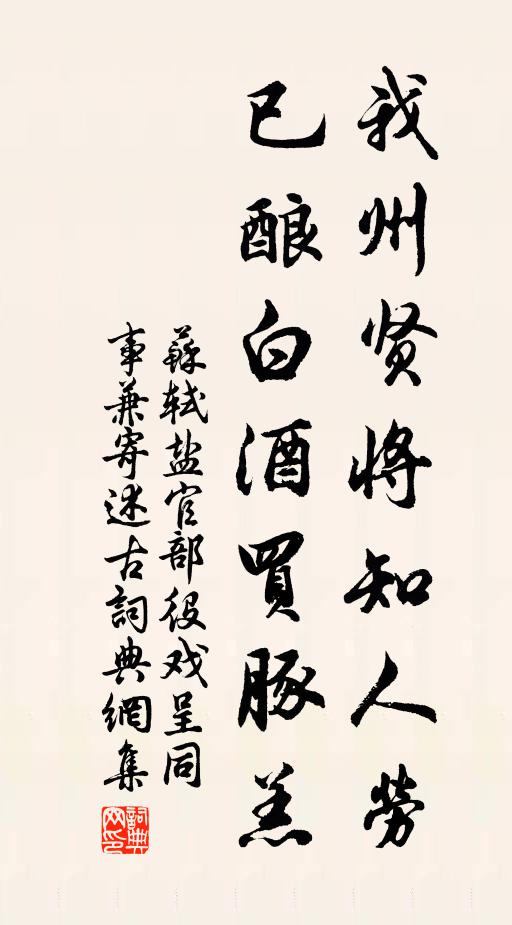 我州贤将知人劳
已酿白酒買豚羔
蘇轼盐官部役戏呈同
事兼寄述古詞典網集
詞典
网印